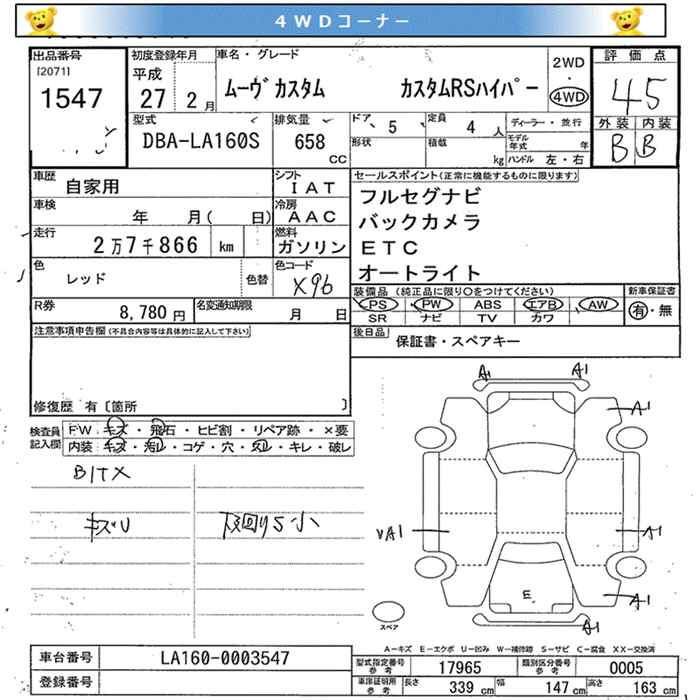 4WDコーナー
出品番号
[2071]
1547
初度登録年月
平成
27 2月
車名・グレード
ムーヴカスタム カスタムRSハイパー
2WD
・
4WD
評価点
4.5
外装 内装
B B
型式
DBA-LA160S
排気量
658
CC
ドア
5
定員
4人
形状
積載
kg
ディーラー・並行
モデル年式 年
ハンドル 左・右
車歴
自家用
シフト
IAT
車検
年 月( 日)
冷房
AAC
走行
2万7千866 km
燃料
ガソリン
色
レッド
色替
色コード
X96
R券
8,780円
名変通知期限
月 日
セールスポイント(正常に機能するものに限ります)
フルセグナビ
バックカメラ
ETC
オートライト
装備品(純正品に限り〇をつけてください)
PS PW ABS エアB AW
SR ナビ TV カワ
新車保証書
有・無
後日品
保証書・スペアキー
注意事項申告欄(不具合内容等は具体的に記入して下さい)
修復歴 有〔箇所 〕
検査員記入欄
FW キズ・飛石・ヒビ割・リペア跡・×要
内装 キズ・汚レ・コゲ・穴・スレ・キレ・破レ
キズU
下廻りS小
A1 A1
A1
VA1 A1
E
A1
A1
スペア
A-キズ E-エクボ U-凹み W-補修跡 S-サビ C-腐食 XX-交換済
車台番号
LA160-0003547
登録番号
型式指定番号 参考
17965
類別区分番号 参考
0005
車庫証明用 参考
長さ 339 cm 幅 147 cm 高さ 163 cm